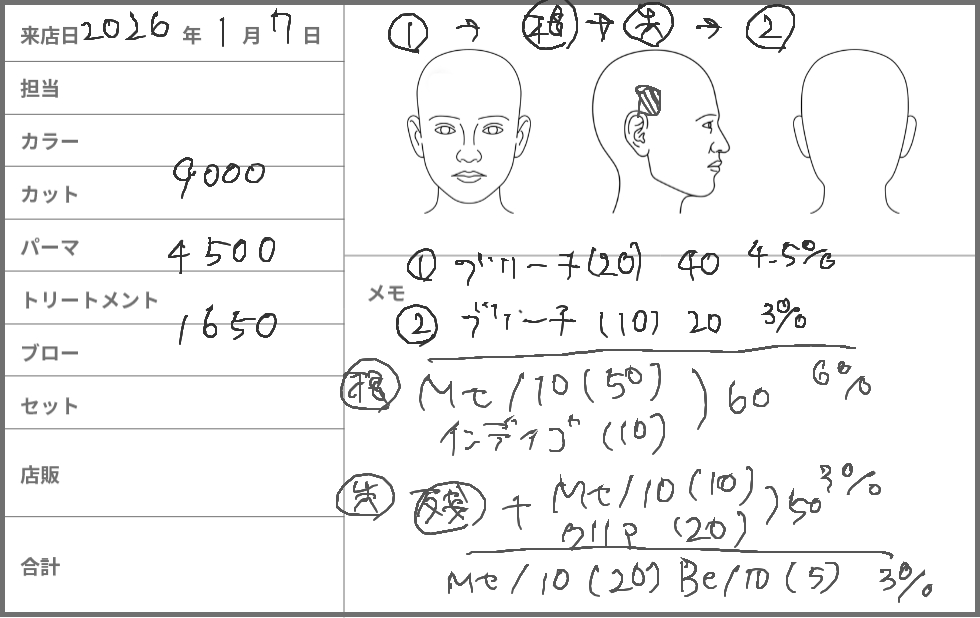 来店日 2026 年 1 月 7 日
担当
カラー
9000
カット
パーマ 4500
トリートメント
1650
ブロー
セット
店販
合計
① → 根 → 先 → ②
① ブリーチ(20) 40 4.5%
メモ
② ブリーチ (10) 20 3%
根 Mt/10 (50) ) 60 6%
インディゴ (10)
+ Mt/10 (10) ) 50 3%
クリア (20)
Mt/10 (20) Be/10 (5) 3%